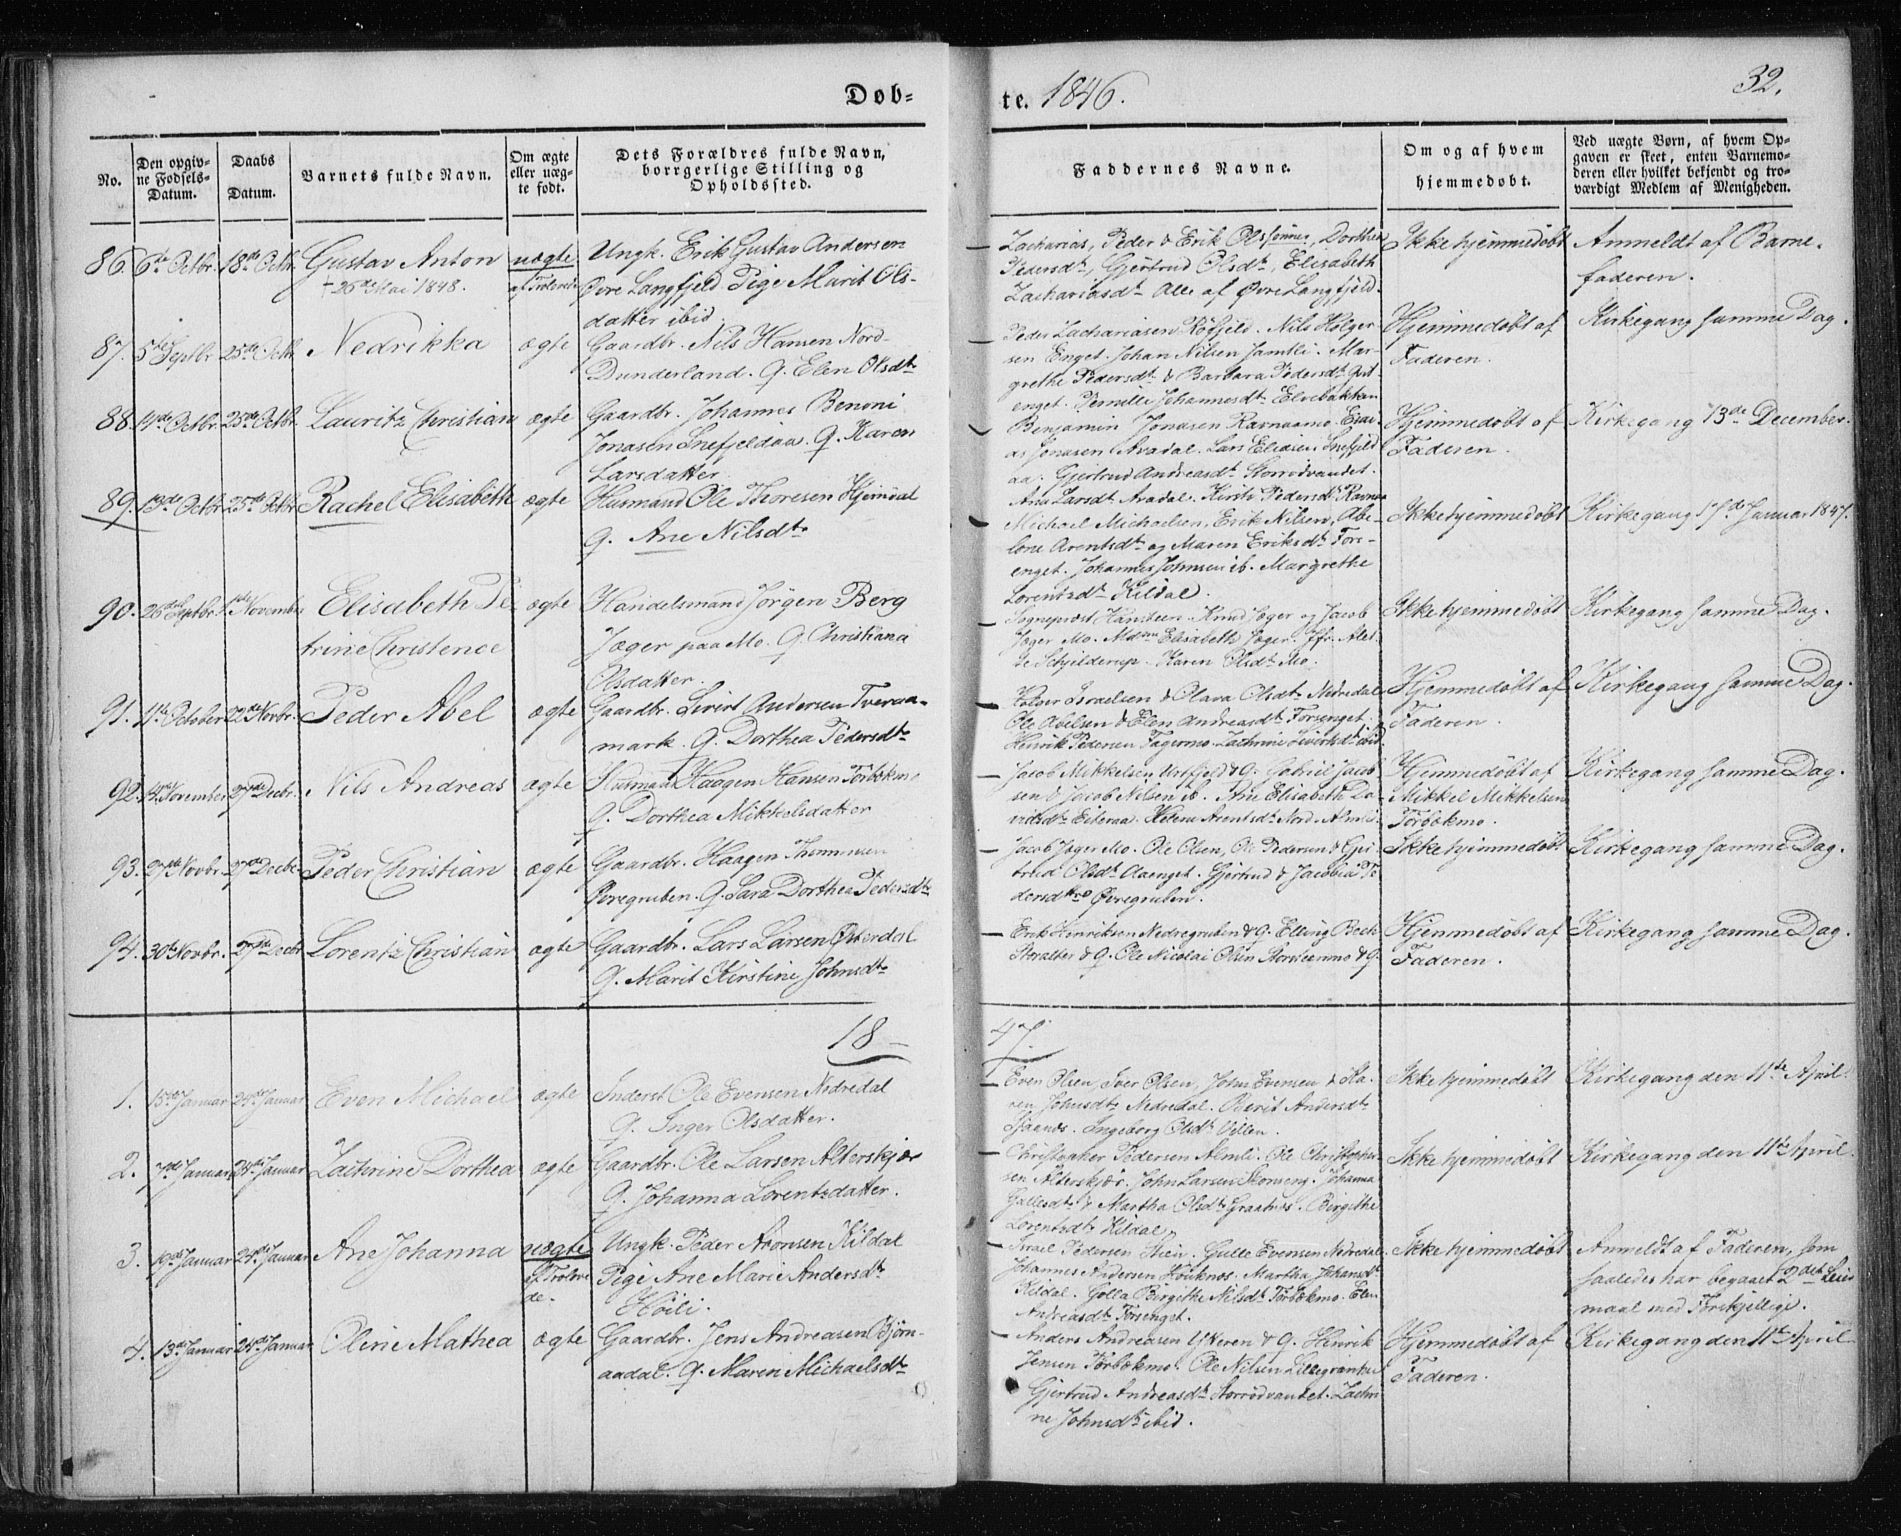 Døb-
te. 1846.
32.
No.
Den opgiv-
ne Fødsels-
Datum.
Daabs
Datum.
Barnets fulde Navn.
Om ægte
eller uæg-
te født.
Dets Forældres fulde Navn,
borrgerlige Stilling og
Opholdssted.
Faddernes Navne.
Om og af hvem
hjemmedøbt.
Ved uægte Børn, af hvem Op-
gaven er skeet, enten Barnemo-
deren eller hvilket bekjendt og tro-
værdigt Medlem af Menigheden.
86. 6te Octbr. 18de Octbr. Gustav Anton uægte Ungk. Erik Gustav Andersen
† 26de Mai 1848. af Trolovede Øvre Langfjeld Pige Marit Ols-
datter ibid.
Zacharias, Peder & Erik Olssønner, Dorthea
Pedersdt., Gjertrud Olsdt., Elisabeth
Zachariasdt. Alle af Øvre Langfjeld.
Ikke hjemmedøbt
Anmeldt af Barne-
faderen.
87. 5te Septbr. 25de Octbr. Nedrikka ægte Gaardbr. Nils Hansen Nord-
Dunderland. Q. Elen Olsdtr.
Peder Zachariasen Røfjeld. Nils Holger-
sen Enget. Johan Nilsen Jamtli. Mar-
grethe Pedersdt. & Barbara Pedersdt.
enget. Pernille Johannesdt. Elvebakken
Hjemmedøbt af
Faderen.
Kirkegang samme Dag.
88. 4de Octbr. 25de Octbr. Lauritz Christian ægte Gaardbr. Johannes Benoni
Jonasen Snefjeldaa. Q. Karen
Larsdatter.
Benjamin Jonasen Ravnaamo. Esai-
as Jonasen Avadal. Lars Eliasen Snefjeld
aa. Gjertrud Andreasdt. Storrødvandet.
Ane Larsdt. Avadal. Kirst. Pedersdt. Ravnaa
Hjemmedøbt af
Faderen.
Kirkegang 13de December.
89. 13de Octbr. 25de Octbr. Rachel Elisabeth ægte Husmand Ole Thoresen Hjemdal
Q. Ane Nilsdtr.
Michael Michaelsen, Erik Nilsen, Abe-
lone Arentsdt. og Maren Eriksdt. Fors-
enget. Johannes Johnsen ib. Margrethe
Lorentzdt. Kildal.
Ikke hjemmedøbt
Kirkegang 17de Januar 1847.
90. 26de Septbr. 1ste November Elisabeth Pe- ægte Handelsmand Jørgen Berg
trine Christence Jæger paa Mo. Q. Christiana
Olsdatter.
Sogneprest Hansteen. Knud Jæger og Jacob
Jæger Mo. Mdme Elisabeth Jæger. Jfr. Alet-
te Schjelderup. Karen Olsdt. Mo.
Ikke hjemmedøbt
Kirkegang samme Dag.
91. 11te October 22de Novbr. Peder Abel ægte Gaardbr. Sivert Andersen Tveraa-
mark. Q. Dorthea Pedersdtr.
Israelsen & Olava Olsdt. Nedredal
Ole Abelsen & Elen Andreasdt. Forsenget.
Henrik Pedersen Fagermo. Zachrine Sivertsdt. ibid.
Hjemmedøbt af
Faderen.
Kirkegang samme Dag.
92. 4de November 27de Decbr. Nils Andreas ægte Husmand Haagen Hansen Tørbækmo
Q. Dorthea Mikkelsdatter
Jacob Mikkelsen Urtfjeld & Q. Gabriel Jacob-
sen & Jacob Nilsen ib. Ane Elisabeth Da-
vidsdt. Eiteraa. Helena Arentsdt. Nord-Almli.
Hjemmedøbt af
Mikkel Mikkelsen
Tørbækmo.
Kirkegang samme Dag.
93. 27de Novbr. 27de Decbr. Peder Christian ægte Gaardbr. Haagen Thommesen
Øvregruben. Q. Sara Dorthea Pedersdtr.
Jacob Jæger Mo. Ole Olsen, Ole Pedersen & Gjer-
trud Olsdt. Aaenget. Gjertrud & Jacobia Pe-
dersdøttre Øvregruben.
Ikke hjemmedøbt
Kirkegang samme Dag.
94. 30te Novbr. 27de Decbr. Lorentz Christian ægte Gaardbr. Lars Larsen Østerdal
Q. Marit Kirstine Johnsdtr.
Erik Henriksen Nedregruben & Q. Elling Bech
Storalter & Q. Ole Nicolai Olsen Storsteenmo & Q.
Hjemmedøbt af
Faderen.
Kirkegang samme Dag.
18
47.
1. 15de Januar 24de Januar Even Michael ægte Inderst Ole Evensen Nedredal
Q. Inger Olsdatter.
Even Olsen, Iver Olsen, John Evensen & Ka-
ren Johnsdt. Nedredal. Berit Andersdt.
Sjaanes. Ingeborg Olsdt. Villen.
Ikke hjemmedøbt
Kirkegang den 11te April.
2. 7de Januar 24de Januar Zachrine Dorthea ægte Gaardbr. Ole Larsen Alterskjær
Q. Johanna Lorentzdatter.
Christopher Pedersen Almli. Ole Christopher-
sen Alterskjær. John Larsen Skonseng. Johanna
Gullesdt. & Martha Olsdt. Graatnes. Birgithe
Lorentsdt. Kildal.
Ikke hjemmedøbt
Kirkegang den 11te April.
3. 19de Januar 24de Januar Ane Johanna uægte Ungk. Peder Aronsen Kildal
af Trolove- Pige Ane Marie Andersdtr.
de. Høili.
Israel Pedersen Hien. Gulle Evensen Nedredal.
Johannes Andersen Høuknes. Martha Johansdt.
Kildal. Golla Birgithe Nilsdt. Tørbækmo. Elen
Andreasdt. Forsenget.
Ikke hjemmedøbt
Anmeldt af Faderen, som
saaledes har begaaet 2det Leier-
maal med Forskjellige.
4. 13de Januar 24de Januar Oline Mathea ægte Gaardbr. Jens Andreasen Bjørn-
aadal. Q. Maren Michaelsdtr.
Anders Andreasen Ytteren & Q. Henrik
Jensen Tørbækmo. Ole Nilsen Lillegranlien
Gjertrud Andreasdt. Storrødvandet. Zachri-
ne Johnsdt. ibid.
Hjemmedøbt af
Faderen.
Kirkegang den 11te April